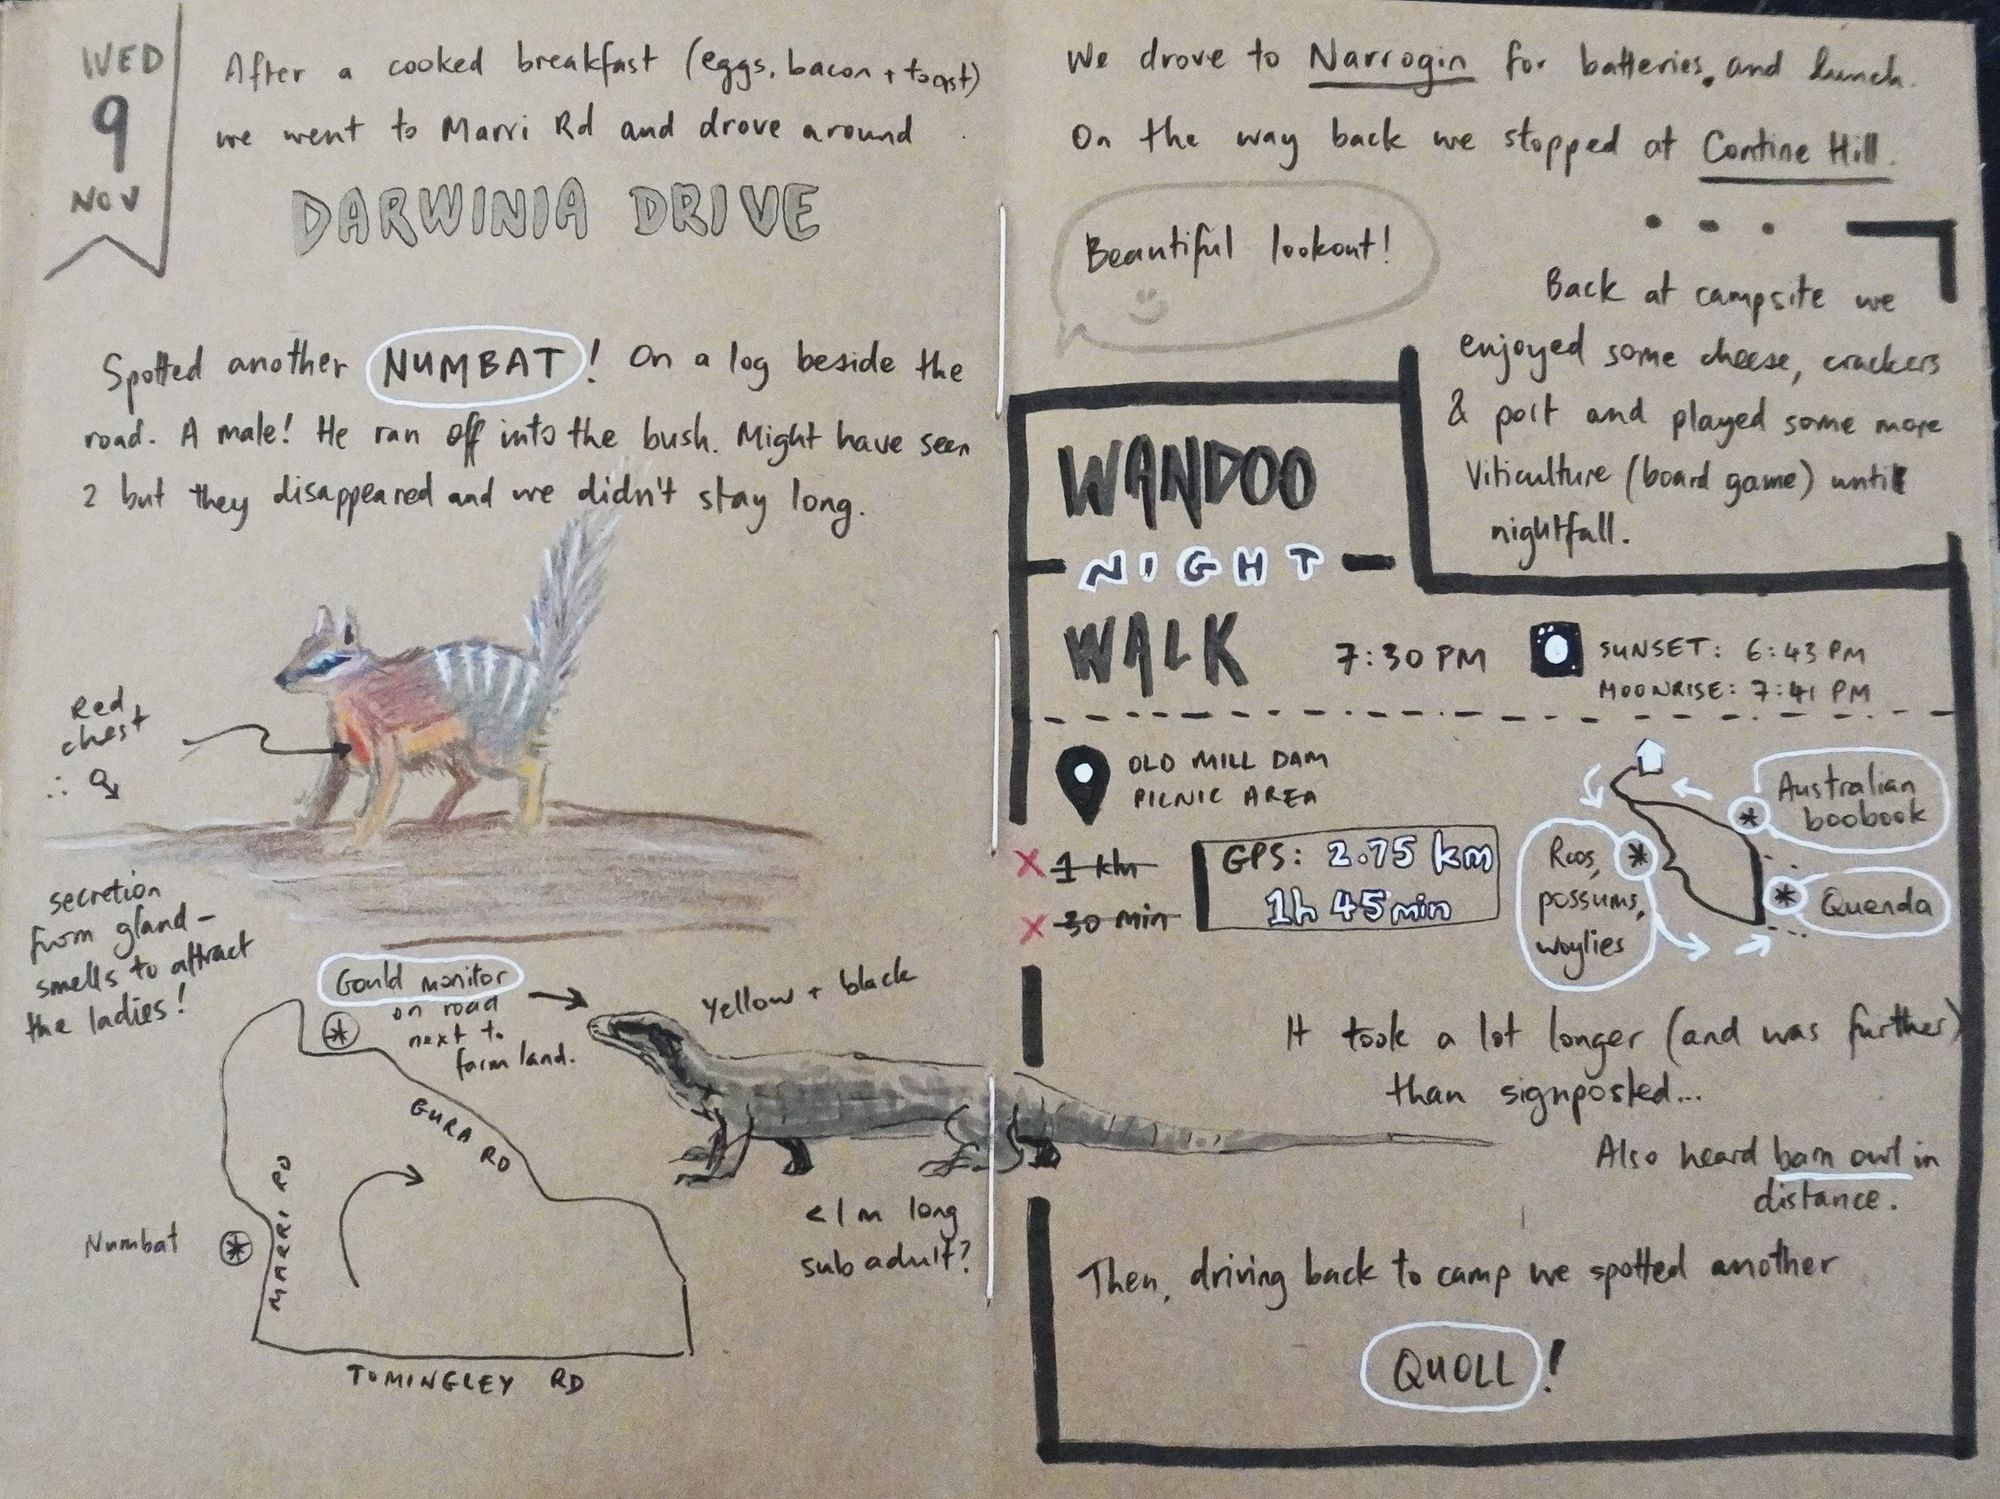 WED
9
NOV
After a cooked breakfast (eggs, bacon + toast)
we went to Marri Rd and drove around
DARWINIA DRIVE
Spotted another NUMBAT! On a log beside the
road. A male! He ran off into the bush. Might have seen
2 but they disappeared and we didn't stay long.
Red
chest
∴ ♂
secretion
from gland –
smells to attract
the ladies!
Gould monitor
on road
next to
farm land.
Yellow + black
GURA RD
MARRI RD
Numbat
TOMINGLEY RD
< 1 m long
sub adult?
We drove to Narrogin for batteries. and lunch.
On the way back we stopped at Contine Hill.
Beautiful lookout!
Back at campsite we
enjoyed some cheese, crackers
& port and played some more
Viticulture (board game) until
nightfall.
WANDOO
NIGHT
WALK
7:30 PM
SUNSET: 6:43 PM
MOONRISE: 7:41 PM
OLD MILL DAM
PICNIC AREA
X 1 km
X 30 min
GPS: 2.75 km
1h 45min
Australian
boobook
Roos,
possums,
woylies
Quenda
It took a lot longer (and was further)
than signposted...
Also heard barn owl in
distance.
Then, driving back to camp we spotted another
QUOLL!